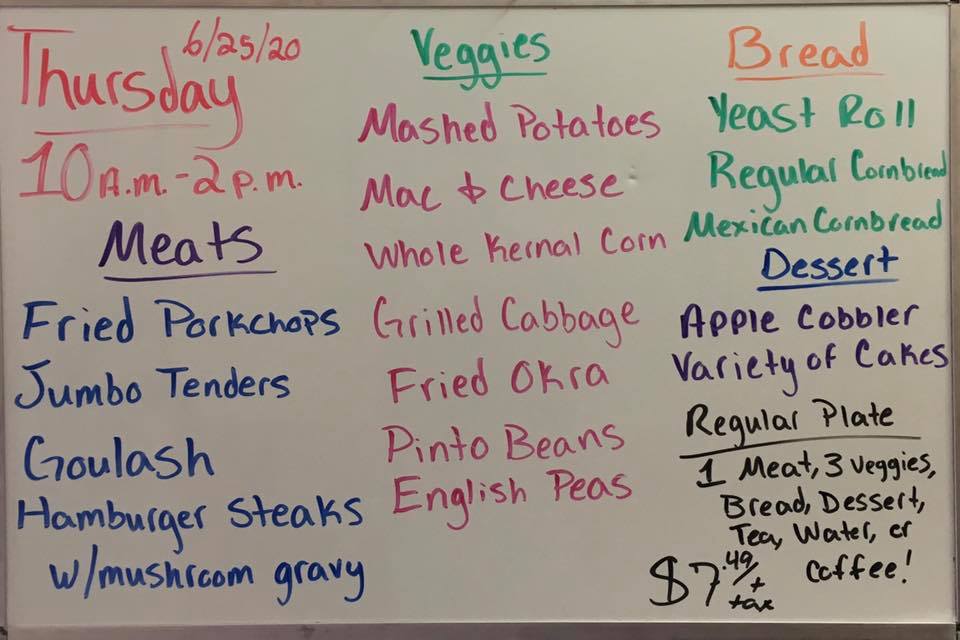 Thursday 6/25/20
10 A.m. - 2 p.m.
Meats
Fried Porkchops
Jumbo Tenders
Goulash
Hamburger Steaks
w/mushroom gravy
Veggies
Mashed Potatoes
Mac & Cheese
Whole Kernal Corn
Grilled Cabbage
Fried Okra
Pinto Beans
English Peas
Bread
Yeast Roll
Regular Cornbread
Mexican Cornbread
Dessert
Apple Cobbler
Variety of Cakes
Regular Plate
1 Meat, 3 Veggies,
Bread, Dessert,
Tea, Water, or
Coffee!
$7.49/+ tax